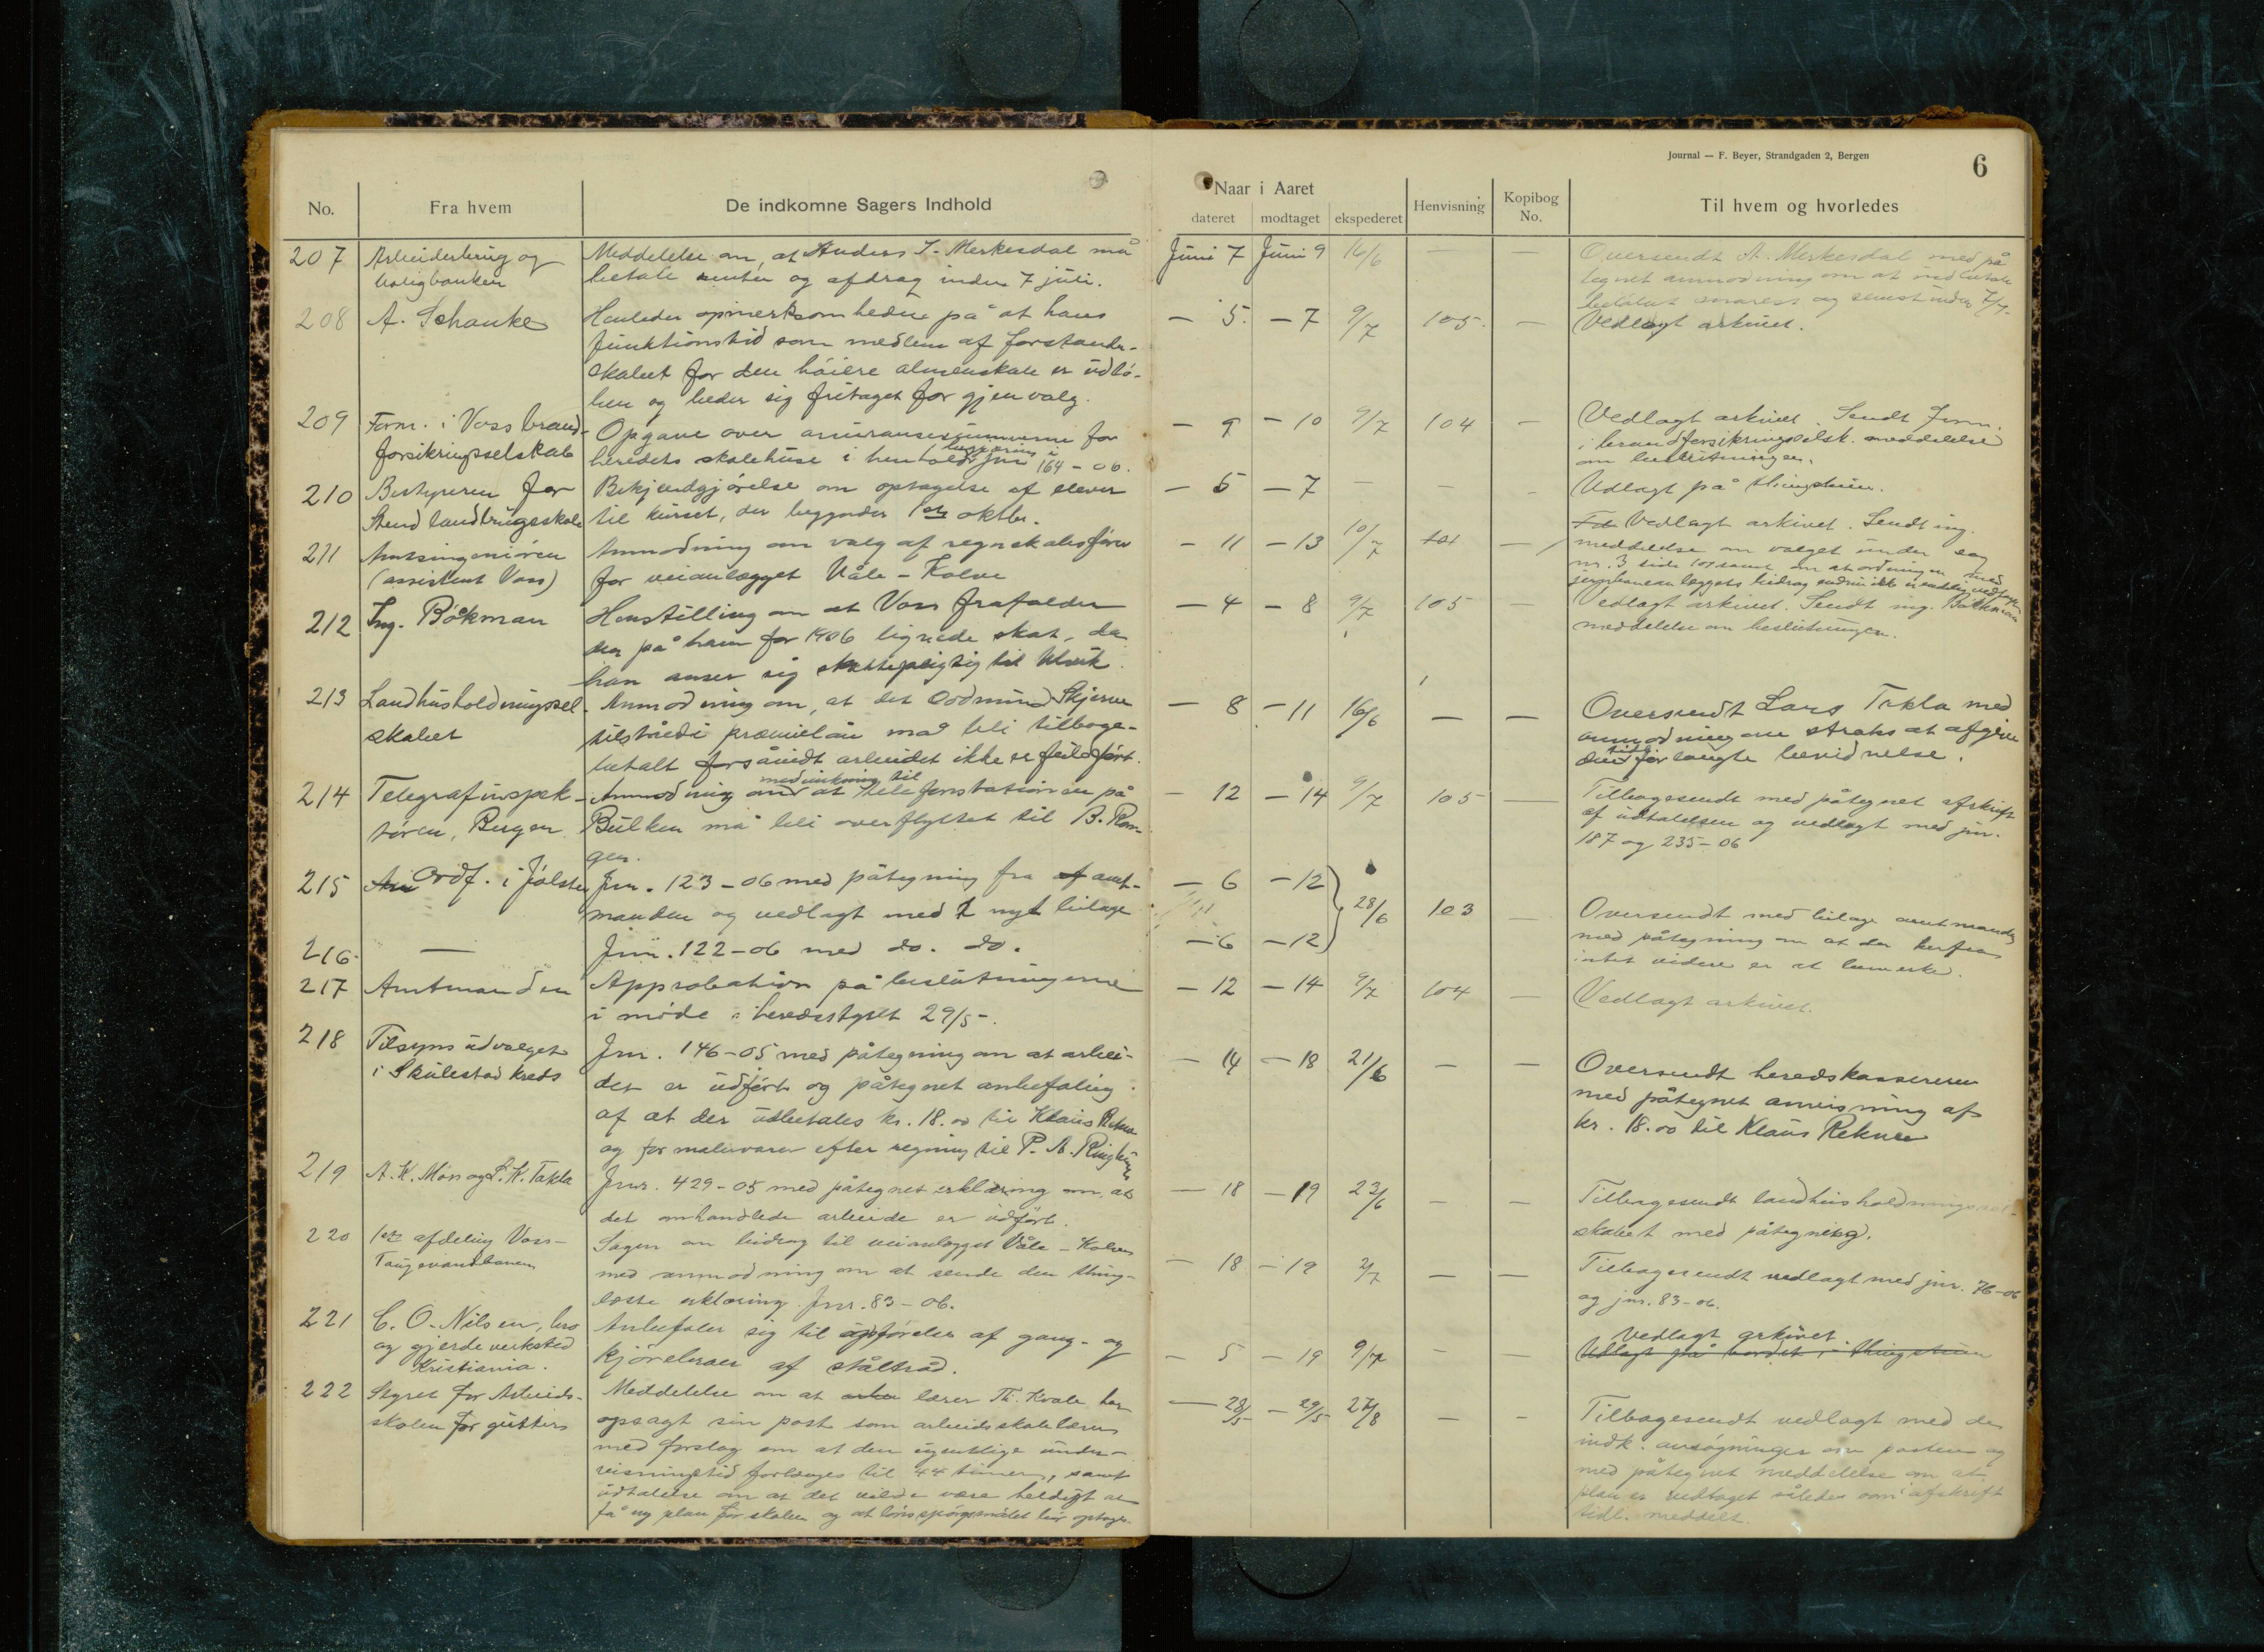 Journal — F. Beyer, Strandgaden 2, Bergen
6
No.
Fra hvem
De indkomne Sagers Indhold
Naar i Aaret
dateret
modtaget
ekspederet
Henvisning
Kopibog No.
Til hvem og hvorledes
207 Arbeiderbrug og Meddelelse om, at Anders I. Merkesdal må Juni 7 Juni 9 16/6 — — Oversendt A. Merkesdal med på
boligbanken betale renter og afdrag inden 7 juli. tegnet anmodning om at indbetale
beløbet snarest og senest inden 7/7.
208 A. Schanke Henleder opmerksomheden på at hans — 5. — 7 9/7 105. — Vedlagt arkivet.
funktionstid som medlem af forstander-
skabet for den høiere almenskole er udlø-
ben og beder sig fritaget for gjenvalg.
209 Form. i Voss brand- Opgave over assurancesummerne for — 9 — 10 9/7 104 — Vedlagt arkivet. Sendt Form.
forsikringsselskab heredets skolehuse i henhold jnr 164-06. i brandforsikringsselsk. meddelelse
om beslutningen.
210 Bestyreren for Bekjendtgjørelse om optagelse af elever — 5 — 7 — — - Udlagt på thingstuen.
Stend landbrugsskole til kurset, der begynder 1ste oktbr.
211 Amtsingeniøren Anmodning om valg af regnskabsfører — 11 — 13 10/7 101 — Vedlagt arkivet. Sendt ing.
(assistent Voss) for veianlægget Våle - Kolve meddelelse om valget under sag
nr. 3 side 101 samt om at ordningen med
jernbaneanlæggets bidrag endnu ikke er endelig vedtagen
212 Ing. Bøkman Henstilling om at Voss frafalder — 4 — 8 9/7 105 — Vedlagt arkivet. Sendt ing. Bøkman
den på ham for 1906 lignede skat, da meddelelse om beslutningen.
han anser sig skattepligtig til Ulvik.
213 Landhusholdningssel- Anmodning om, at det Oddmund Skjerve — 8 — 11 16/6 — — Oversendt Lars Takla med
skabet tilståede præmielån må bli tilbage- anmodning om straks at afgive
betalt forsåvidt arbeidet ikke er fuldført. den forlangte bevidnelse.
214 Telegrafinspek- Anmodning om medvirkning til at telefonstationen på — 12 — 14 9/7 105 — Tilbagesendt med påtegnet afskrift
tøren, Bergen Bulken må bli overflyttet til B. Ron- af udtalelsen og vedlagt med jnr.
gen. 187 og 235-06
215 Ordf. i Jølster Jnr. 123-06 med påtegning fra amt- — 6 — 12 28/6 103 — Oversendt med bilage amtmanden
manden og vedlagt med 1 nyt bilage med påtegning om at der herfra
216. — Jnr. 122-06 med do. do. — 6 — 12 intet videre er at bemerke.
217 Amtmanden Approbation på beslutningerne — 12 — 14 9/7 104 — Vedlagt arkivet.
i møde i heredsstyret 29/5-.
218 Tilsynsudvalget Jnr. 146-05 med påtegning om at arbei- — 14 — 18 21/6 — — Oversendt heredskassereren
i Skulestad kreds det er udført og påtegnet anbefaling med påtegnet anvisning af
af at der udbetales kr. 18.00 til Klaus Rekve kr. 18.00 til Klaus Rekve
og for malervarer efter regning til P. A.
219 A. K. Møn og L. K. Takla Jnr. 429-05 med påtegnet erklæring om at — 18 — 19 23/6 — — Tilbagesendt landhusholdningssel-
det omhandlede arbeide er udført. skabet med påtegning.
220 1ste afdeling Voss- Sagen om bidrag til veianlægget Våle - Kolve — 18 — 19 2/7 — — Tilbagesendt vedlagt med jnr. 76-06
Taugevandbanen med anmodning om at sende den thing- og jnr. 83-06.
læste erklæring. Jnr. 83-06.
221 C. O. Nilsen, bro Anbefaler sig til opførelse af gang- og — 5 — 19 9/7 — — Vedlagt arkivet.
og gjerdeverksted kjørebroer af ståltråd. Udlagt på bordet i thingstuen
Kristiania.
222 Styret for Arbeids- Meddelelse om at lærer Th. Kvale har — 28/5 — 29/5 27/8 — - Tilbagesendt vedlagt med de
skolen for gutter opsagt sin post som arbeidsskolelærer indk. ansøgninger om posten og
med forslag om at den egentlige under- med påtegnet meddelelse om at
visningstid forlænges til 44 timer, samt plan er vedtaget således som i afskrift
udtalelse om at det vilde være heldigt at tidl. meddelt.
få ny plan for skolen og at lønsspørgsmålet bør optages.